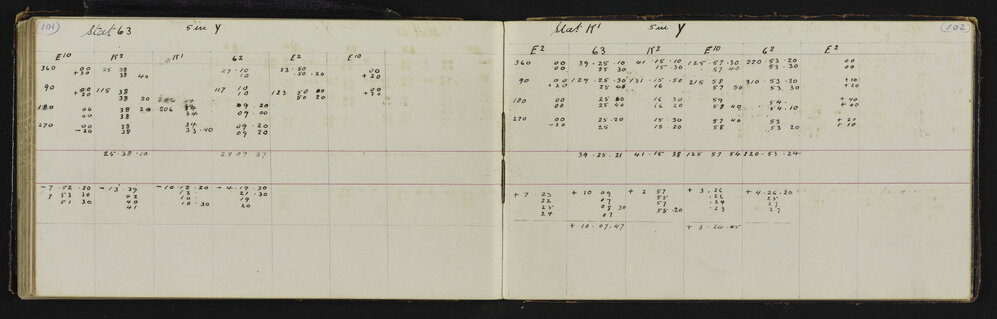 (101) Stat 63 5 in Y
E10 K2 K1 62 E2 E10
360 00 25 38 27·10 33·50 00
+20 38 40 10 50·20 +20
90 00 115 38 117 10 123 50 00
+20 38 20 10 50 20 +20
180 00 38 20 206 34 09·20
00 38 34 09·00
270 00 38 34 09·20
-20 38 33·40 09 20
25·38·10 27 09 37
-7·52·20 -13·39 -10·12·20 -4·19·30
7 53 30 42 13 21·30
51 30 40 10 19
41 10·30 20
(102) Stat K1 5 in Y
E2 63 K2 E10 62 E2
360 00 39·25·10 41·15·10 125·57·30 220·53·20 00
00 25 30 15 30 57 40 53·30 00
90 00 129·25·30 131·15·50 215 58 310·53·30 +10
+20 25 40 16 57 50 53 30 +20
180 00 25 16 30 59 54 +40
00 25 40 16 20 58 40 54·10 +40
270 00 25·20 15·30 57 40 53 +20
-20 25 15·20 58 53 20 +10
39·25·21 41·15 38 125 57 54 220·53·24
+7 23 +10 09 +2 57 +3·26 +4·26·20
22 07 55 ·26 25
25 08 30 57 ·24 27
24 07 55·20 ·23 27
+10·07·47 +3·24·45